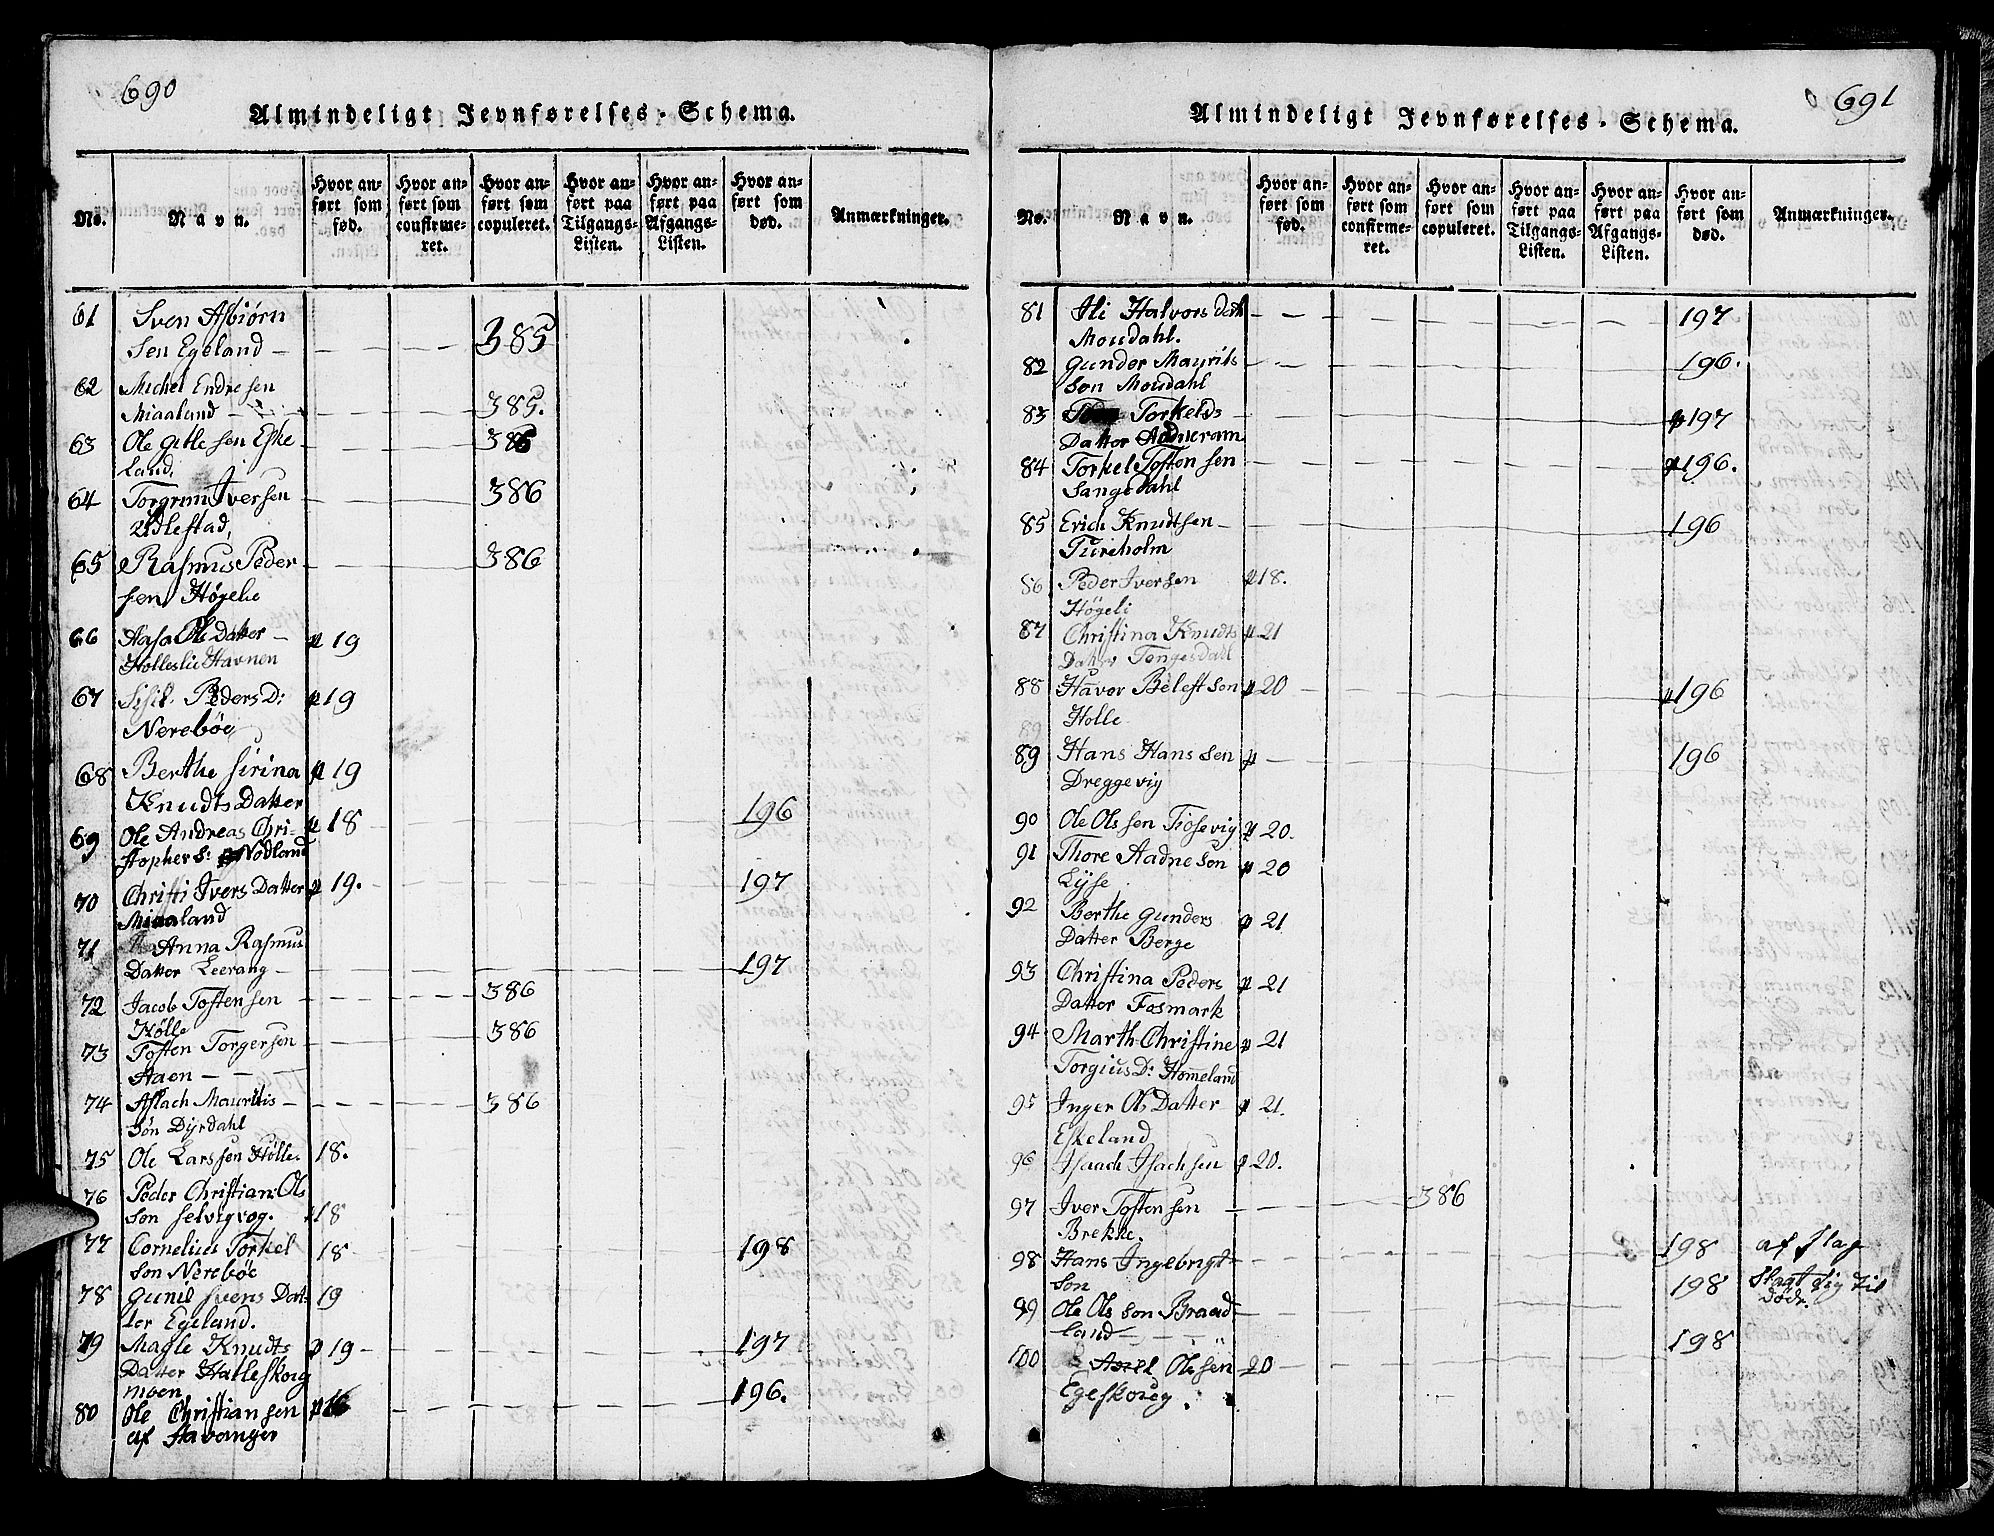 690
Almindeligt Jevnførelses-Schema.
No. Navn. Hvor anført som fød. Hvor anført som confirmeret. Hvor anført som copuleret. Hvor anført paa Tilgangs-Listen. Hvor anført paa Afgangs-Listen. Hvor anført som død. Anmærkninger.
61 Sven Asbiørn
sen Egeland — 385
62 Michel Endresen
Miaaland — 385.
63 Ole Gitle sen Eske 386
land.
64 Torgrim Iversen 386
Udlestad,
65 Rasmus Peder 386
sen Högelie
66 Aasa Ols Datter — p 19
Holleslie Havnen
67 Sisil Peders D: p 19
Nerebøe
68 Berthe Sirina p 19
Knudts Datter 196
69 Ole Andreas Chri- p 18
stophers: Nödland
70 Christi Ivers Datter p 19. 197
Miaaland
71 Anna Rasmus
Datter Leerang — 197
72 Jacob Tosten sen 386
Hölle
73 Tosten Torgersen 386
Haen — — —
74 Aslach Mauritis — 386
Søn Dyrdahl
75 Ole Lars sen Hölle. 18.
76 Peder Christian: Ols
son Selvigvog. 18
77 Cornelius Torkel 18 198
son Nerebøe
78 Gunil Svens Dat- 19
ter Egeland.
79 Magle Knudts p 19 197
Datter Hatleskog
moen
80 Ole Christian sen p 16 196.
af Stavanger
691
Almindeligt Jevnførelses-Schema.
No. Navn. Hvor anført som fød. Hvor anført som confirmeret. Hvor anført som copuleret. Hvor anført paa Tilgangs-Listen. Hvor anført paa Afgangs-Listen. Hvor anført som død. Anmærkninger.
81 Ili Halvors dat 197
Moudahl.
82 Gunder Mayrits 196.
Søn Moudahl
83 Torkelds p 197
Datter Aadneram
84 Torkel Tosten sen p 196.
Sangesdahl
85 Erich Knudtsen — 196
Tureholm
86 Peder Iversen p 18.
Högeli
87 Christina Knudts p 21
Datter Tengesdall
88 Havor Belest son p 20 p 196
Holle
89
89 Hans Hans sen p — 196
Dreggevig
90 Ole Ols sen Fiosevig p 20.
91 Thore Aadne son p 20
Lyse
92 Berthe Gunders p 21
Datter Berge
93 Christina Peders p 21
Datter Fosmark
94 Marth Christine p 21
Torgius D: Homeland
95 Inger Ols Datter p 21.
Eskeland
96 Isaach Isachsen p 20.
97 Iver Tosten sen 386
Brekke.
98 Hans Ingebrigt 198 af Slag
son
99 Ole Ols son Braad 198 Slagt sig til
land — Dödr.
100 Axel Ole sen 20 198
Egeskoug